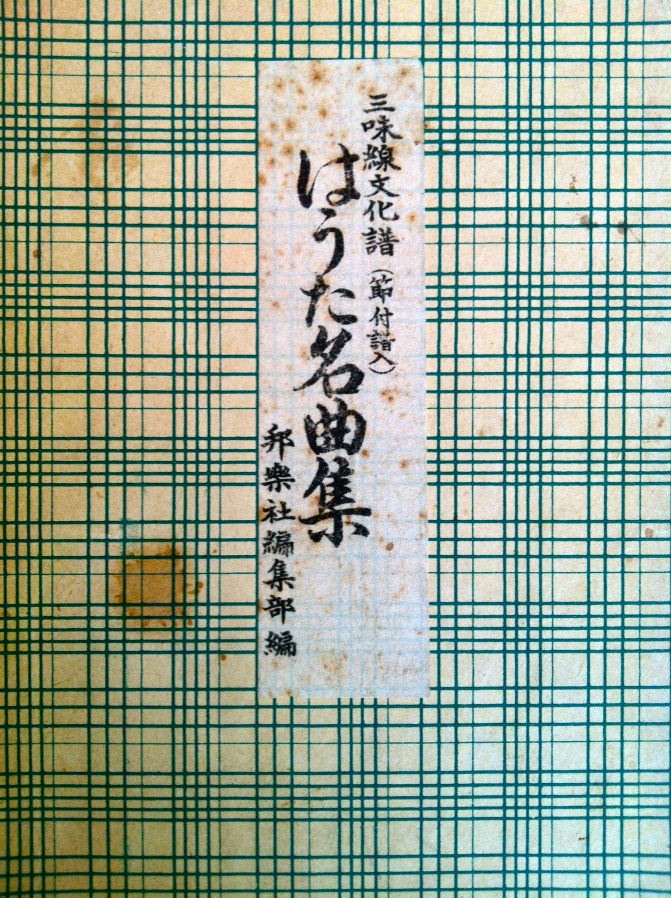 三味線文化譜(節付譜入)
はうた名曲集
邦樂社編集部編